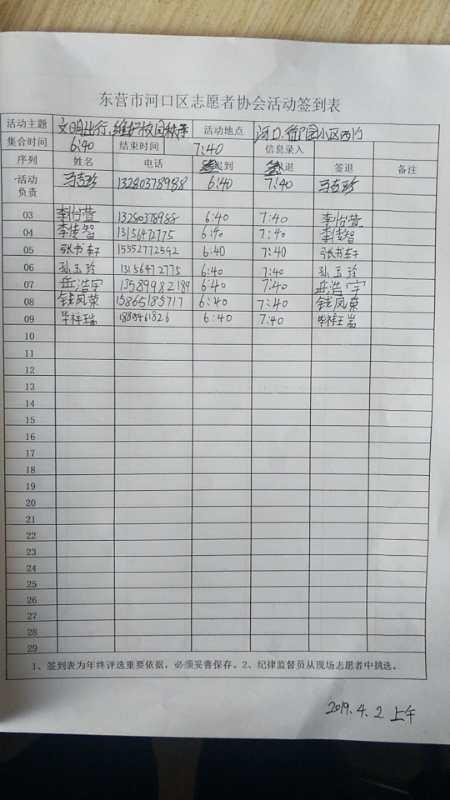 东营市河口区志愿者协会活动签到表
活动主题 文明出行,维护校园秩序 活动地点 河口御园小区西门
集合时间 6:40 结束时间 7:40 信息录入
序列 姓名 电话 到 退 签退 备注
活动负责 13280378988 6:40 7:40
03 李怡萱 13280378988 6:40 7:40 李怡萱
04 李俊智 6:40 7:40 李俊智
05 张书轩 15552772592 6:40 7:40 张书轩
06 孙玉玲 13156472775 6:40 7:40 孙玉玲
07 岳浩宇 13589982189 6:40 7:40 岳浩宇
08 钱凤荣 13865185717 6:40 7:40 钱凤荣
09 毕梓瑞 6:40 7:40 毕梓瑞
10
11
12
13
14
15
16
17
18
19
20
21
22
23
24
25
26
27
28
29
1、签到表为年终评选重要依据,必须妥善保存。2、纪律监督员从现场志愿者中挑选。
2019.4.2 上午